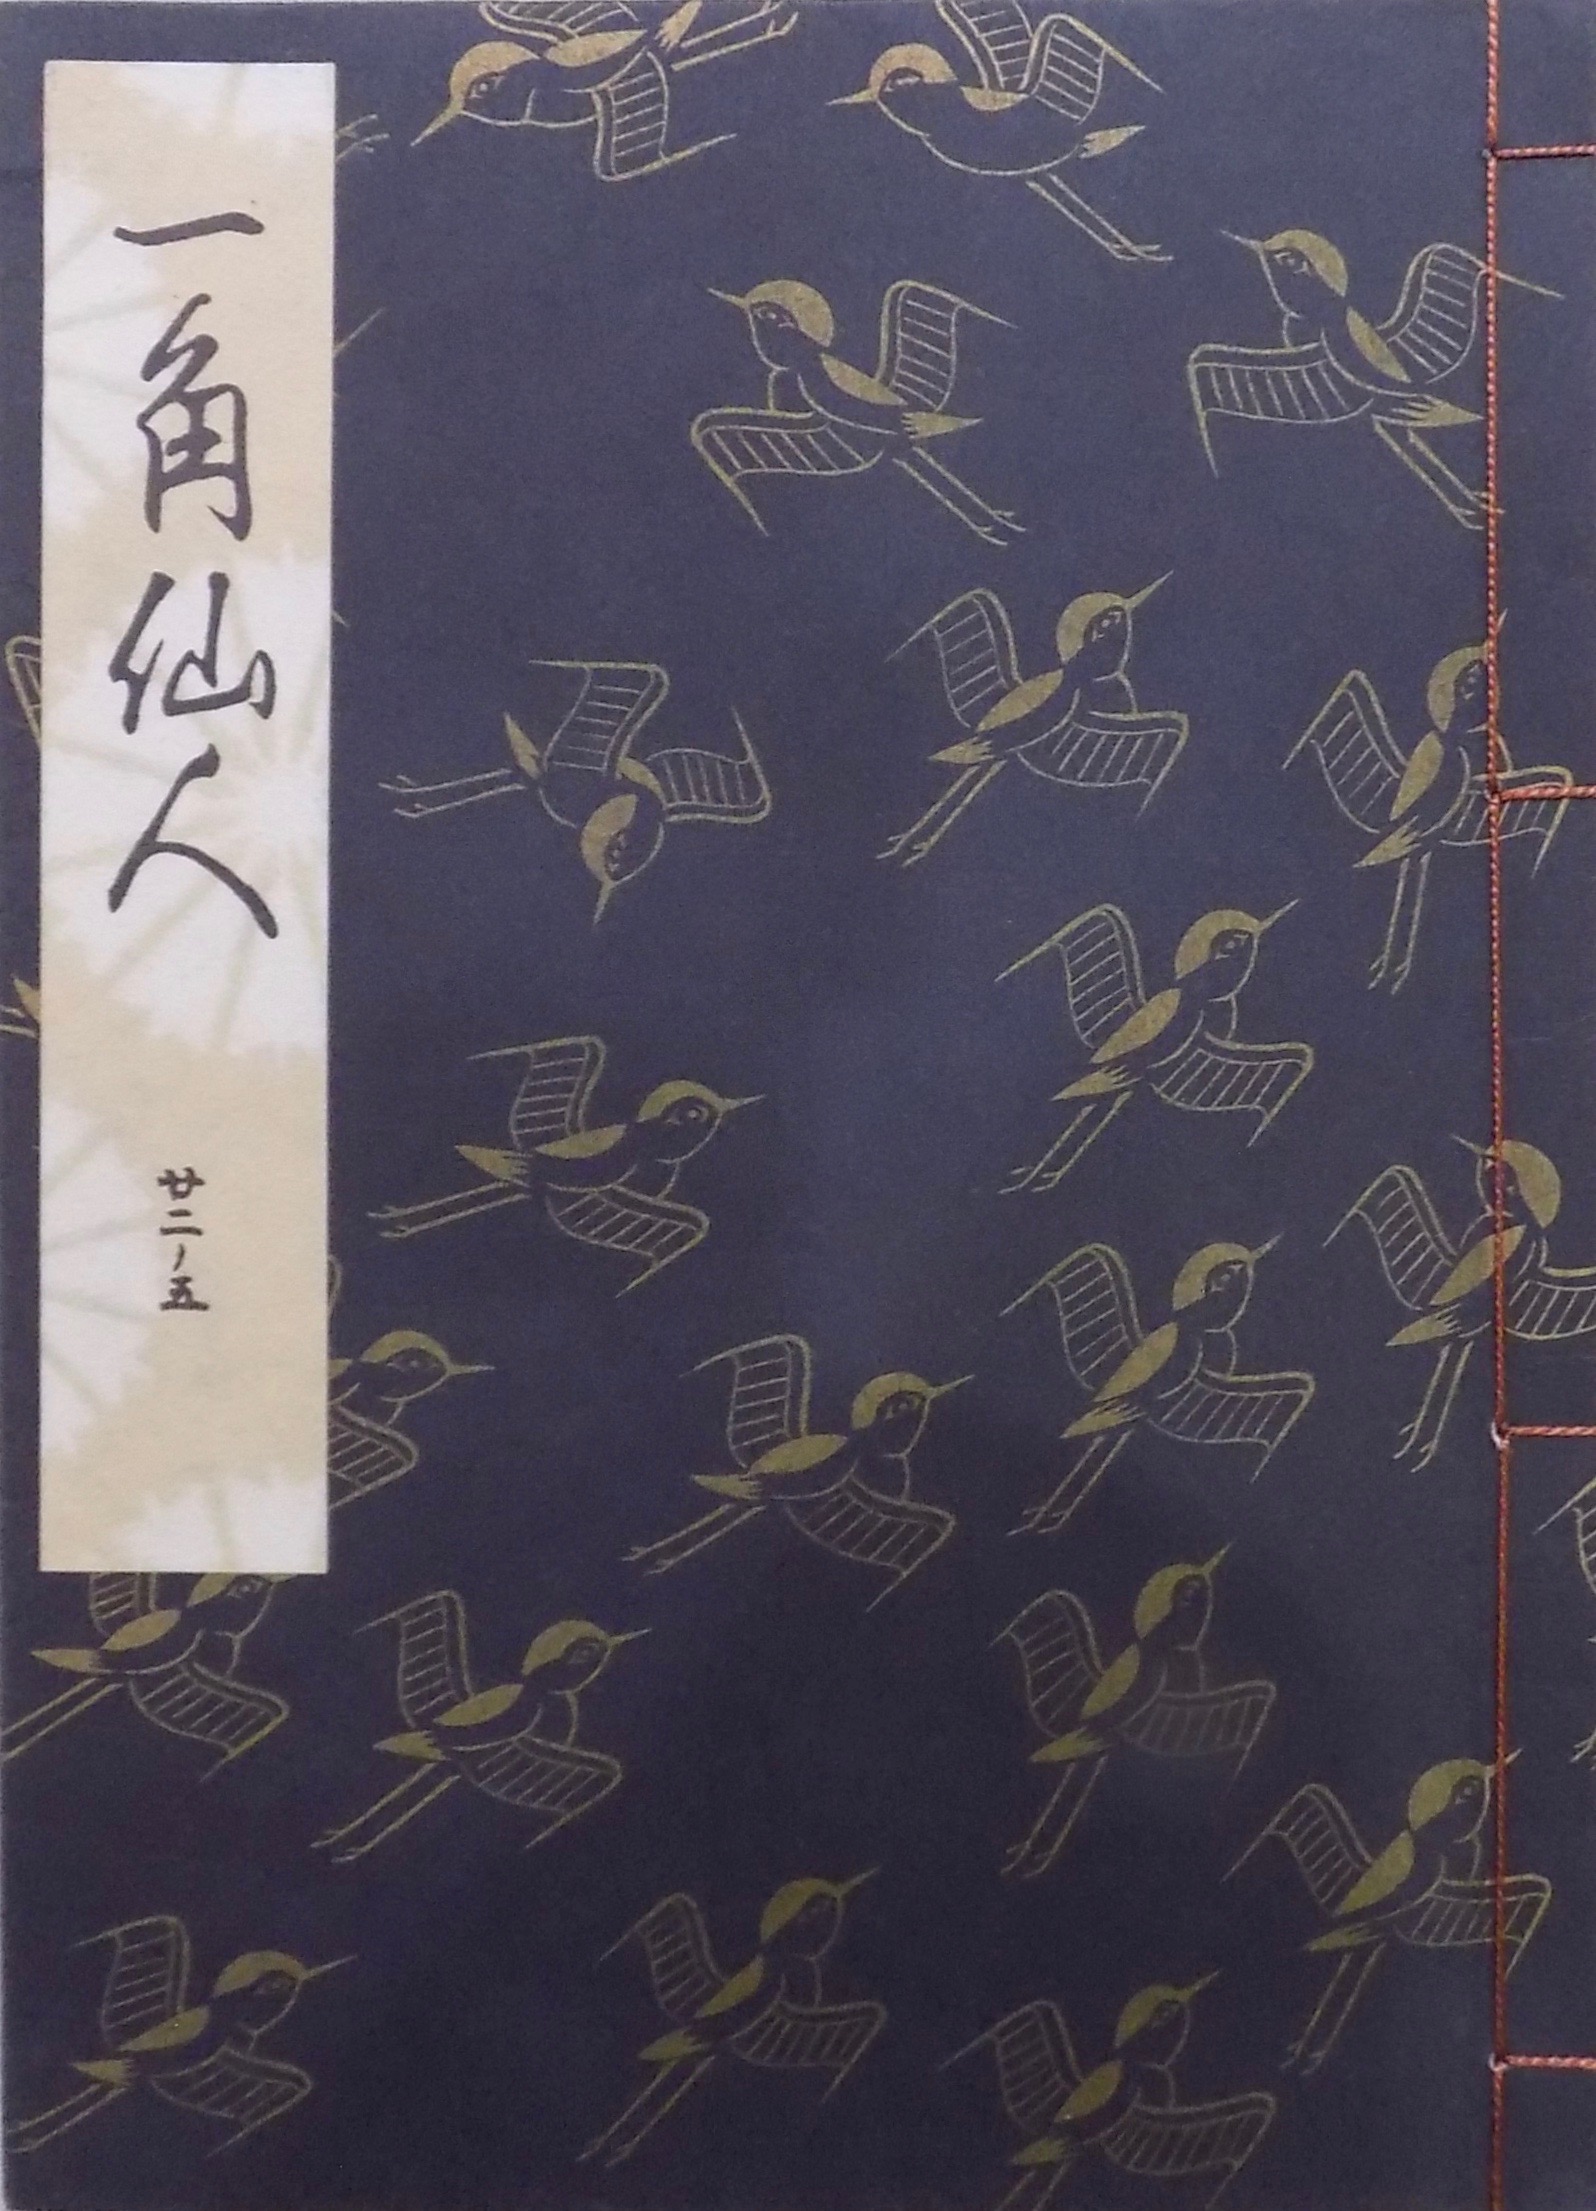 一角仙人
廿二ノ五